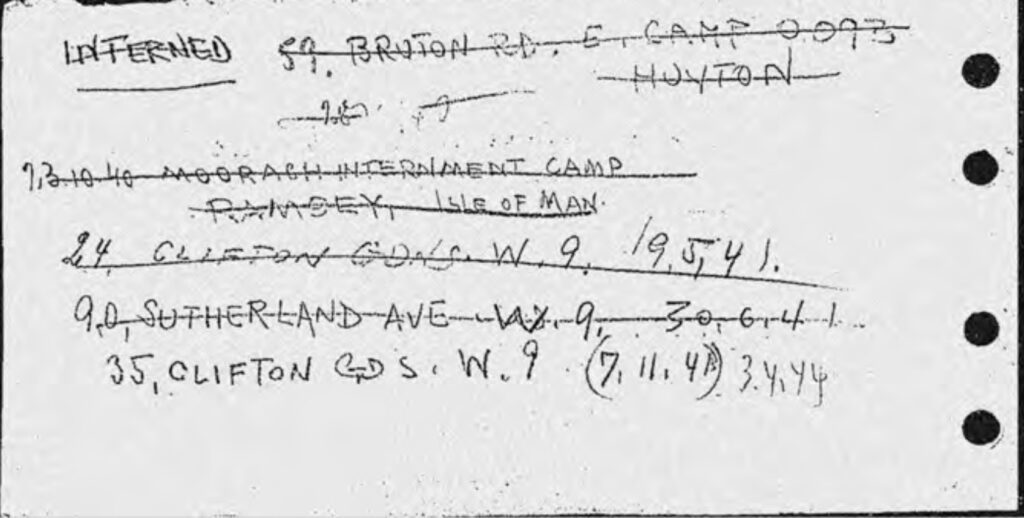 INTERNED 59. BRUTON RD. E. CAMP 0.093
HUYTON
23.10.40 MOORAGH INTERNMENT CAMP
RAMSEY, ISLE OF MAN.
24, CLIFTON GDNS. W. 9. 19.5,41.
90, SUTHERLAND AVE. W. 9, 30.6.41.
35, CLIFTON GDS. W. 9 (7.11.41) 3.4.44